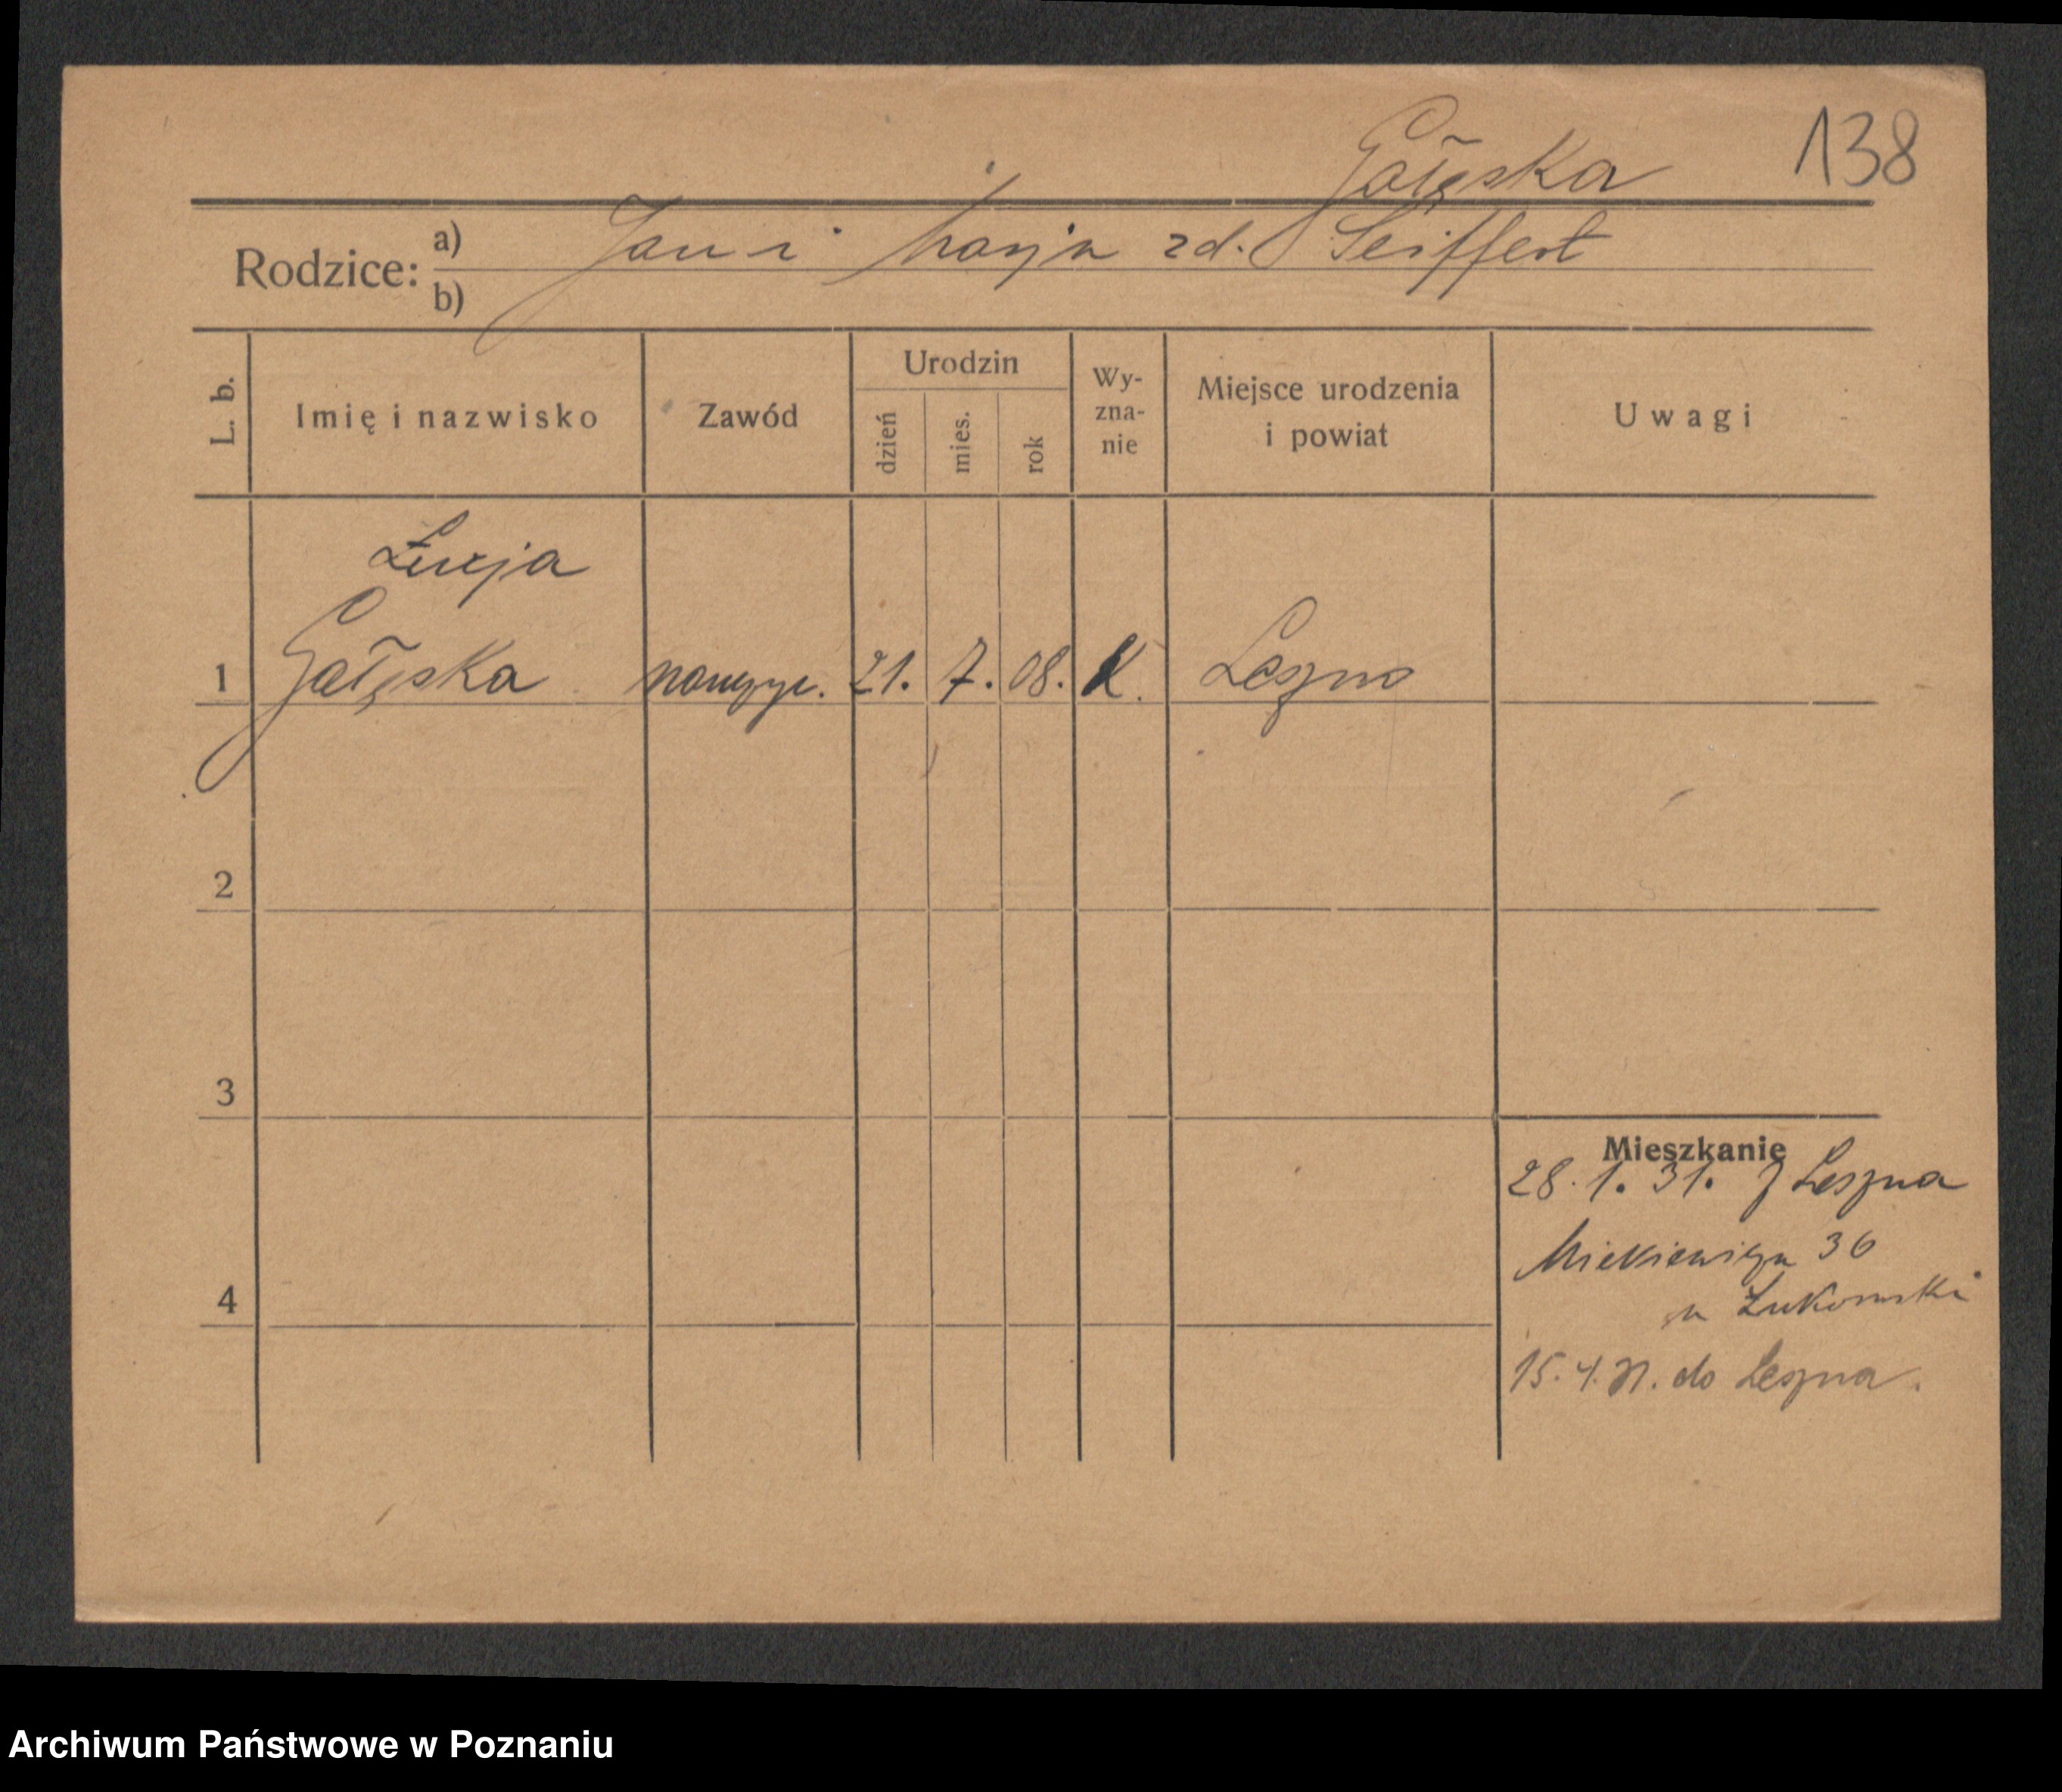 138
Gałęska
Rodzice: a) Jan i Marja zd. Seiffert
b)
L. b.
Imię i nazwisko
Zawód
Urodzin
dzień
mies.
rok
Wy-
zna-
nie
Miejsce urodzenia
i powiat
Uwagi
Łucja
1 Gałęska nauczyc. 21. 7. 08. K. Leszno
2
3
4
Mieszkanie
28. 1. 31. z Leszna
Mickiewicza 36
u Łukomski
15. 4. 31. do Leszna.
Archiwum Państwowe w Poznaniu